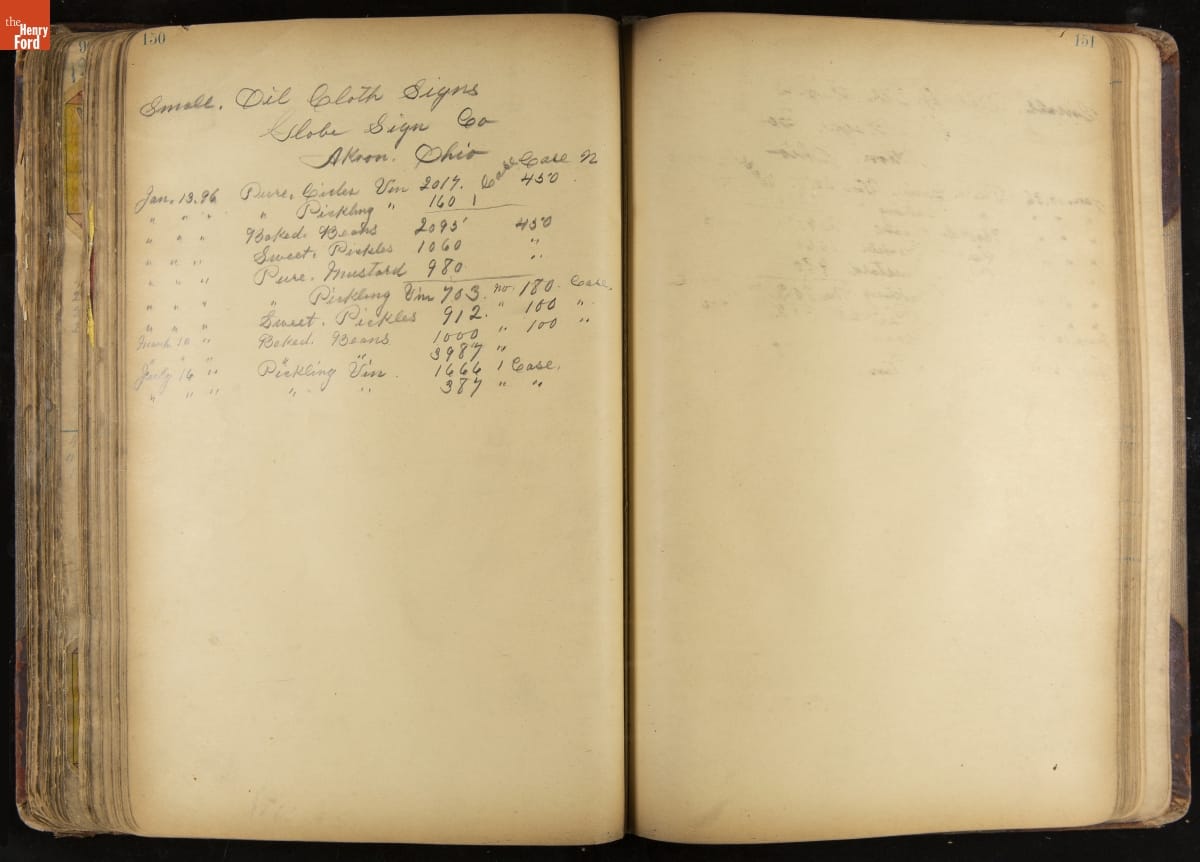 the
Henry
Ford
150
Small. Oil Cloth Signs
Globe Sign Co
Akron. Ohio
Case Case N
Jan. 13. 96 Pure. Cider Vin 2017. 450
" " " " Pickling " 160 1
" " " Baked. Beans 2095 450
" " " Sweet. Pickles 1060 "
" " " Pure. Mustard 980 "
" " " " Pickling Vin 703. no. 180. Case.
" " " Sweet. Pickles 912. " 100 "
March 10 " Baked. Beans 1000 " 100 "
" " " " " 3987 "
July 16 " Pickling Vin. 1666 1 Case.
" " " " " 387 " "
151